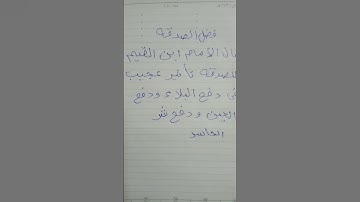 فضل الصدقة
قال الامام ابن القيم
للصدقة تأثير عجيب
في دفع البلاء ودفع
العين ودفع شر
الحاسد